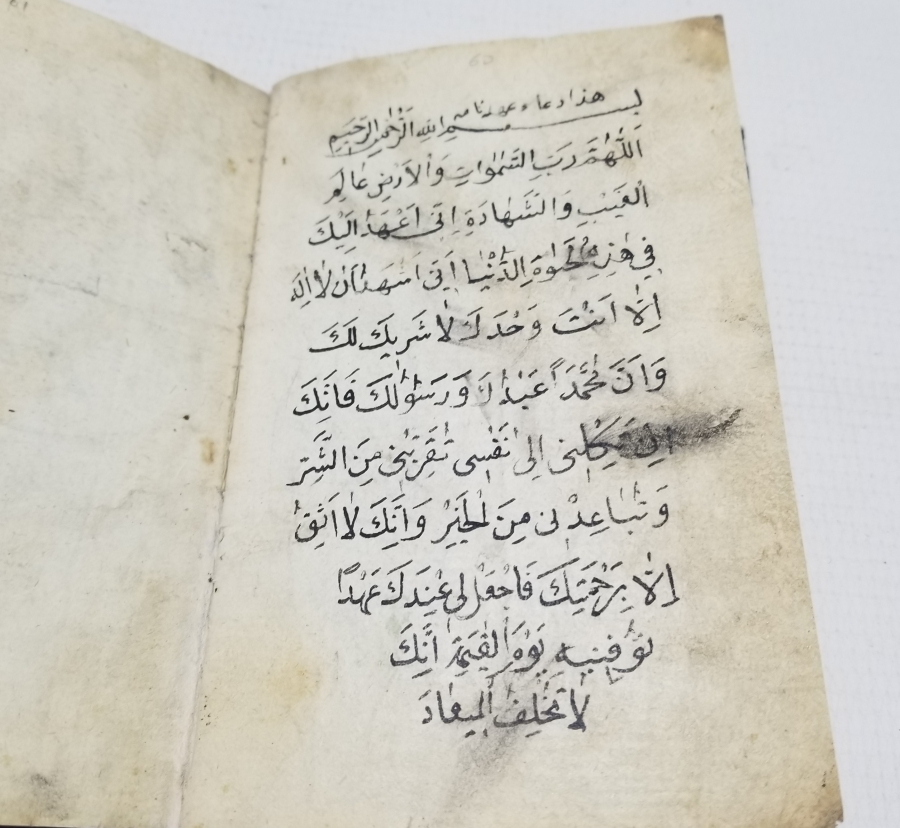 هذا دعاء عهدنامه
بسم الله الرحمن الرحيم
اَللّٰهُمَّ رَبَّ السَّمٰوَاتِ وَالْاَرْضِ عَالِمَ
الْغَيْبِ وَالشَّهَادَةِ اِنّى اَعْهَدُ اِلَيْكَ
فِى هٰذِهِ الْحَيٰوةِ الدُّنْيَا اِنّى اَشْهَدُ اَنْ لَا اِلٰهَ
اِلَّا اَنْتَ وَحْدَكَ لَا شَرِيكَ لَكَ
وَاَنَّ مُحَمَّدًا عَبْدُكَ وَرَسُولُكَ فَاِنَّكَ
اِنْ تَكِلْنِى اِلٰى نَفْسِى تُقَرِّبْنِى مِنَ الشَّرِّ
وَتُبَاعِدْنِى مِنَ الْخَيْرِ وَاَنَّكَ لَا اَثِقُ
اِلَّا بِرَحْمَتِكَ فَاجْعَلْ لِى عِنْدَكَ عَهْدًا
تُوَفِّنِيهِ يَوْمَ الْقِيٰمَةِ اِنَّكَ
لَا تُخْلِفُ الْمِيعَادَ
60